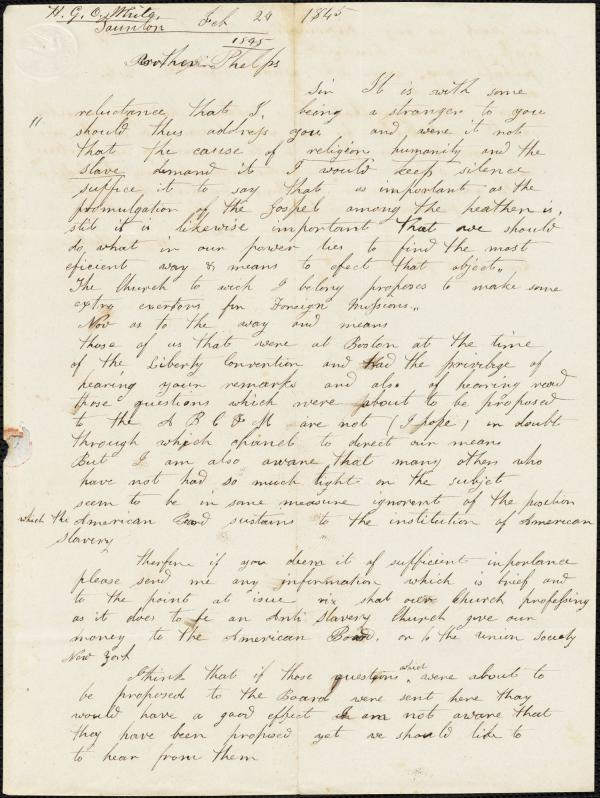 H. G. O. White,
Taunton Feb 24 1845
1845
Brother Phelps
Sir It is with some
reluctance that I, being a stranger to you
should thus address you and were it not
that the cause of religion humanity and the
slave demand it I would keep silence
suffice it to say that as important as the
promulgation of the Gospel among the heathen is,
stil it is likewise important that we should
do, what in our power lies to find the most
eficient way & means to efect that object,,
The Church to wich I belong proposes to make some
extra exertions for Foreign Missions,,
Now as to the way and means
those of us that were at Boston at the time
of the Liberty Convention and had the privilege of
hearing your remarks and also of hearing read
those questions which were about to be proposed
to the A B C F M are not (I hope) in doubt
through which chanel to direct our means
But I am also aware that many others who
have not had so much light on the subject
seem to be in some measure ignorant of the position
which the American Bord sustains to the institution of American
Slavery
therfore if you deem it of sufficient inportance
please send me any information which is brief and
to the point at isue viz shal our Church professing
as it does to be an Anti Slavery Church give our
money to the American Board, or to the union Society
New York
I think that if those questions which were about to
be proposed to the Board were sent here thay
would have a good effect I am not aware that
they have been proposed yet we should like to
to hear from them